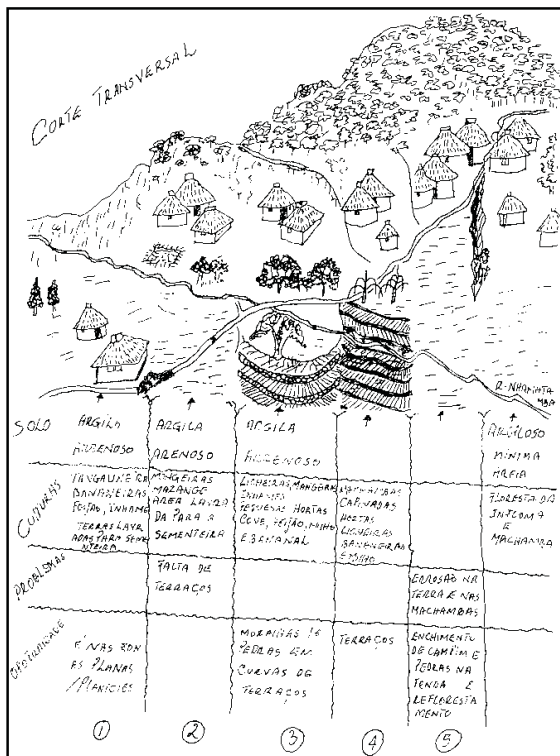 CORTE TRANSVERSAL
R. NHAMHATA
MBA
SOLO
ARGILO
ARRENOSO
ARGILA
ARENOSO
ARGILA
ARRENOSO
ARGILOSO
MINIMA
AREIA
CULTURAS
BANANEIRAS
FEIJÃO, INHAME
TERRAS LAVR
ADAS PARA SEME
NTEIRA
MANGEIRAS
AREA LAVRA
DA PARA A
SEMENTEIRA
LICHEIRAS, MANGEIRAS
INHAMES
PEQUENAS HORTAS
COVE, FEIJÃO, MILHO
E BANANAL
MACHAMBAS
CAPINADAS
HORTAS
LIGUEIRAS
BANENEIRAS
FLORESTA DA
E
MACHAMBA
PROBLEMAS
FALTA DE
TERRAÇOS
ERROSÃO NA
TERRA E NAS
MACHAMBAS
É NAS ZON
AS PLANAS
/PLANICIES
PEDRAS EM
CURVAS DE
TERRAÇOS
TERRAÇOS
ENCHIMENTO
DE CAMPIM E
PEDRAS NA
FENDA E
REFLORESTA
MENTO
1
2
3
4
5